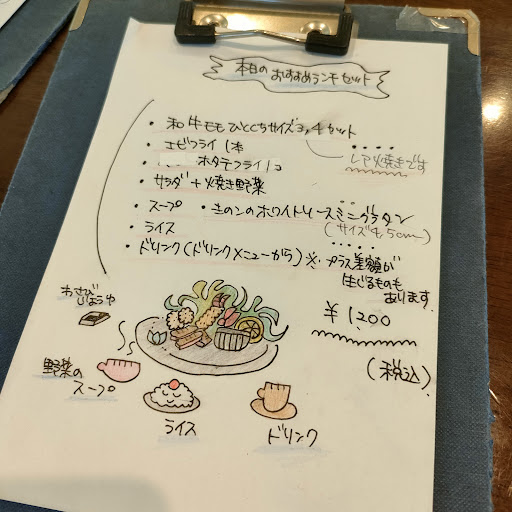 本日の おすすめランチセット
・和牛モモ ひとくちサイズ3,4カット
レア焼きです
・エビフライ 1本
・ホタテフライ 1コ
・サラダ+焼き野菜
・スープ ・きのこのホワイトソースミニグラタン
(サイズ4,5cm)
・ライス
・ドリンク(ドリンクメニューから) ※プラス差額が
生じるものも
あります
¥1,200
(税込)
わさび
じょうゆ
野菜の
スープ
ライス
ドリンク